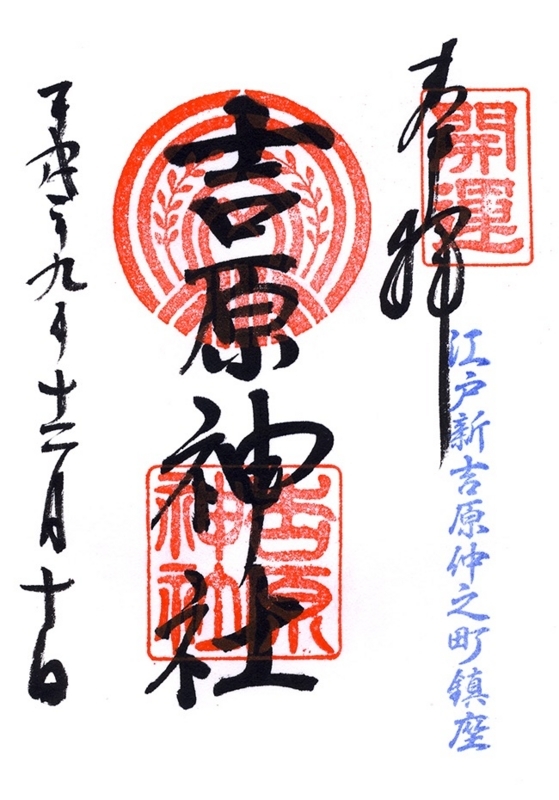 開運
奉拝
江戸新吉原仲之町鎮座
吉原神社
吉原神社
平成二十九年十二月十日